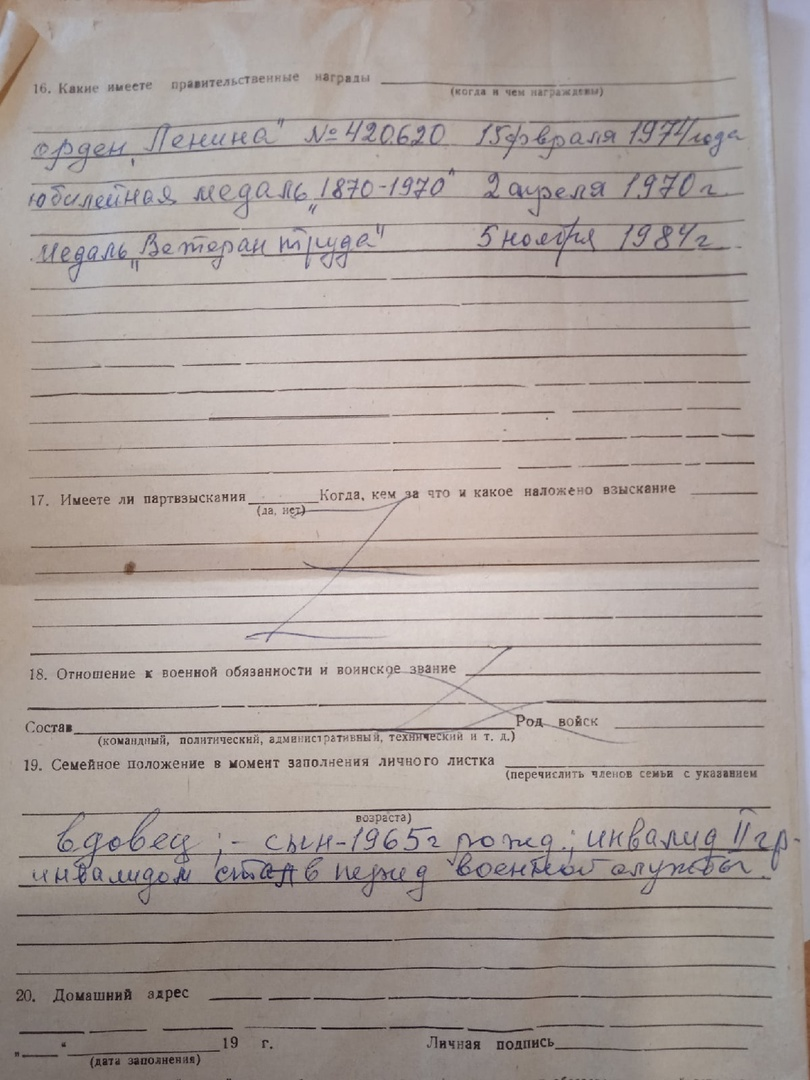 16. Какие имеете правительственные награды
(когда и чем награждены)
орден „Ленина" № 420620 15 февраля 1974 года
юбилейная медаль „1870-1970" 2 апреля 1970 г.
медаль „Ветеран труда" 5 ноября 1984 г.
17. Имеете ли партвзыскания Когда, кем за что и какое наложено взыскание
(да, нет)
18. Отношение к военной обязанности и воинское звание
Состав Род войск
(командный, политический, административный, технический и т. д.)
19. Семейное положение в момент заполнения личного листка
(перечислить членов семьи с указанием
возраста)
вдовец ; - сын - 1965 г рожд.; инвалид II гр-
инвалидом стал в период военной службы.
20. Домашний адрес
„ " 19 г. Личная подпись
(дата заполнения)